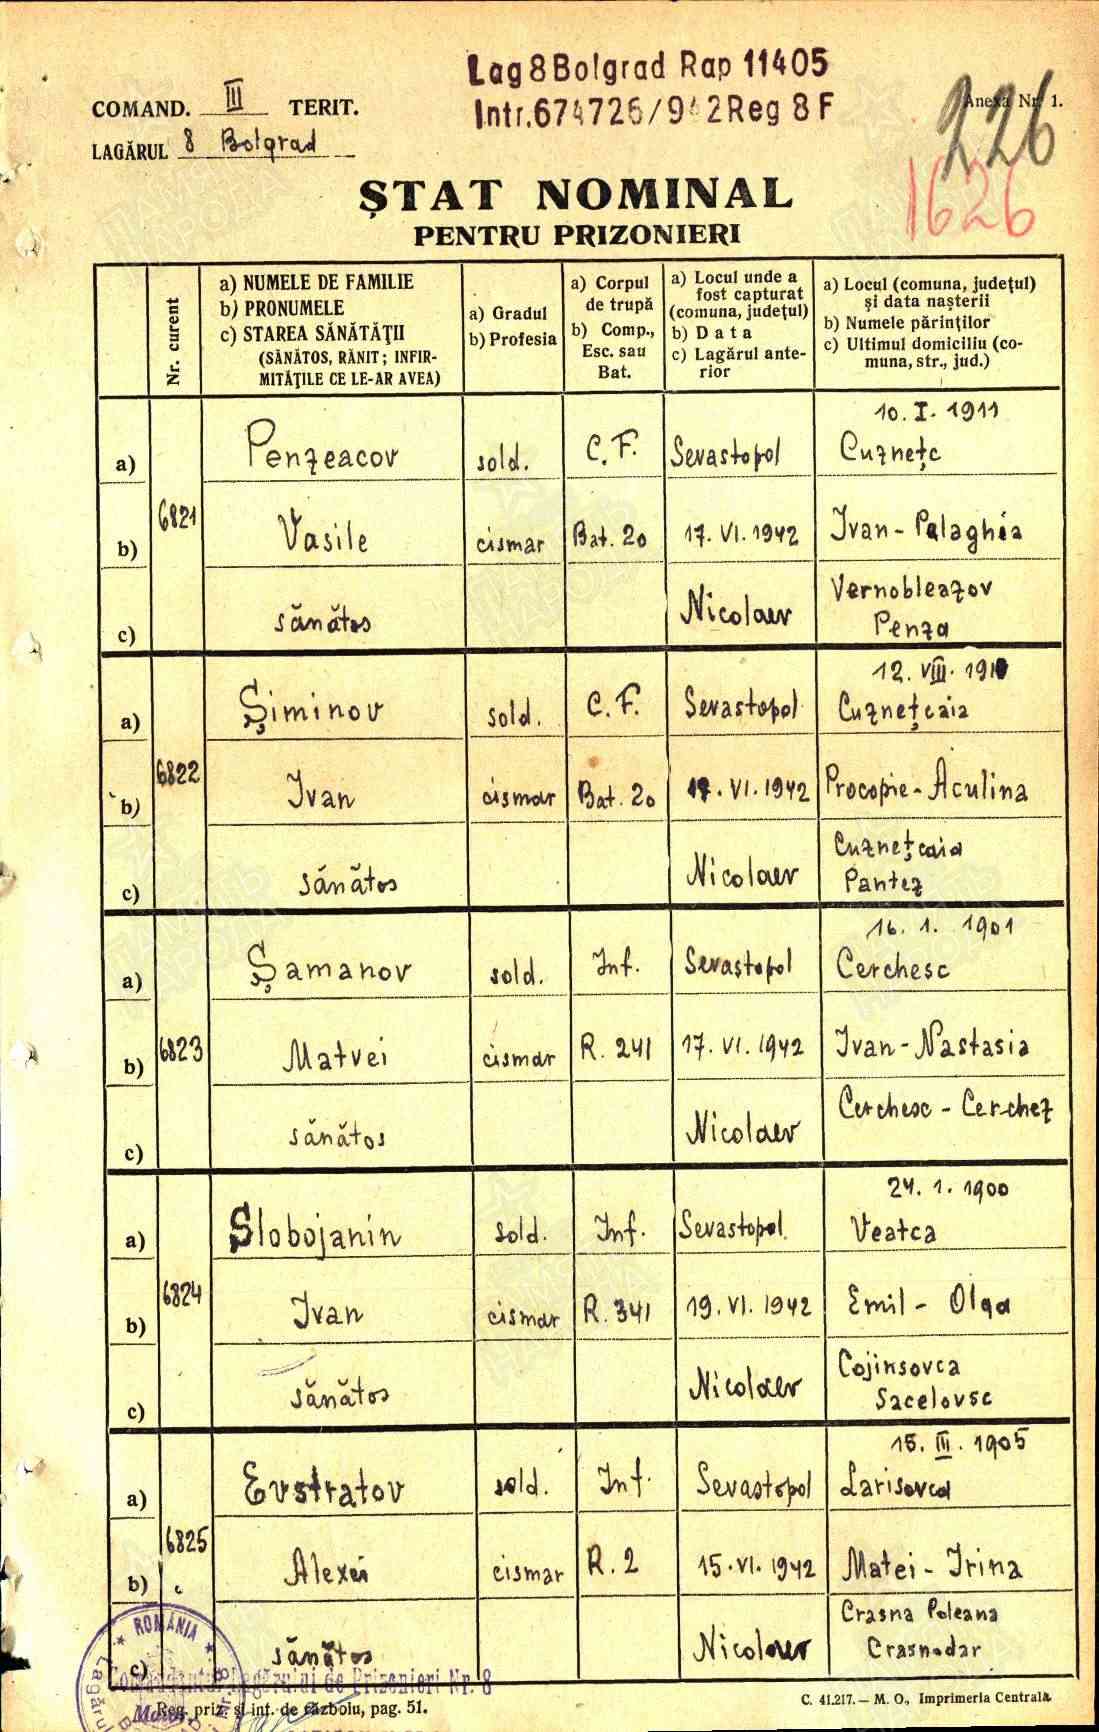 Lag 8 Bolgrad Rap 11405
Intr. 674726/942 Reg 8 F
COMAND. III TERIT.
Anexa Nr. 1.
226
LAGĂRUL 8 Bolgrad
1626
ȘTAT NOMINAL
PENTRU PRIZONIERI
Nr. curent
a) NUMELE DE FAMILIE
b) PRONUMELE
c) STAREA SĂNĂTĂȚII
(SĂNĂTOS, RĂNIT; INFIR-
MITĂȚILE CE LE-AR AVEA)
a) Gradul
b) Profesia
a) Corpul
de trupă
b) Comp.,
Esc. sau
Bat.
a) Locul unde a
fost capturat
(comuna, județul)
b) Data
c) Lagărul ante-
rior
a) Locul (comuna, județul)
și data nașterii
b) Numele părinților
c) Ultimul domiciliu (co-
muna, str., jud.)
10. I. 1911
a) Penzeacov sold. C. F. Sevastopol Cuznețc
6821
b) Vasile cismar Bat. 20 17. VI. 1942 Ivan - Palaghia
c) sănătos Nicolaev Vernobleazov
Penza
12. VIII. 1910
a) Șiminov sold. C. F. Sevastopol Cuznețcaia
6822
b) Ivan cismar Bat. 20 17. VI. 1942 Procopie - Aculina
c) sănătos Nicolaev Cuznețcaia
Pantez
16. 1. 1901
a) Șamanov sold. Inf. Sevastopol Cerchesc
6823
b) Matvei cismar R. 241 17. VI. 1942 Ivan - Nastasia
c) sănătos Nicolaev Cerchesc - Cerchez
24. 1. 1900
a) Slobojanin sold. Inf. Sevastopol Veatca
6824
b) Ivan cismar R. 341 19. VI. 1942 Emil - Olga
c) sănătos Nicolaev Cojinsovca
Sacelovsc
15. III. 1905
a) Evstratov sold. Inf. Sevastopol Larisovca
6825
b) Alexei cismar R. 2 15. VI. 1942 Matei - Irina
c) sănătos Nicolaev Crasna Poleana
Crasnodar
ROMÂNIA
Comandantul Lagărului de Prizonieri Nr. 8
Reg. priz. și int. de războiu, pag. 51.
C. 41.217. — M. O., Imprimeria Centrală